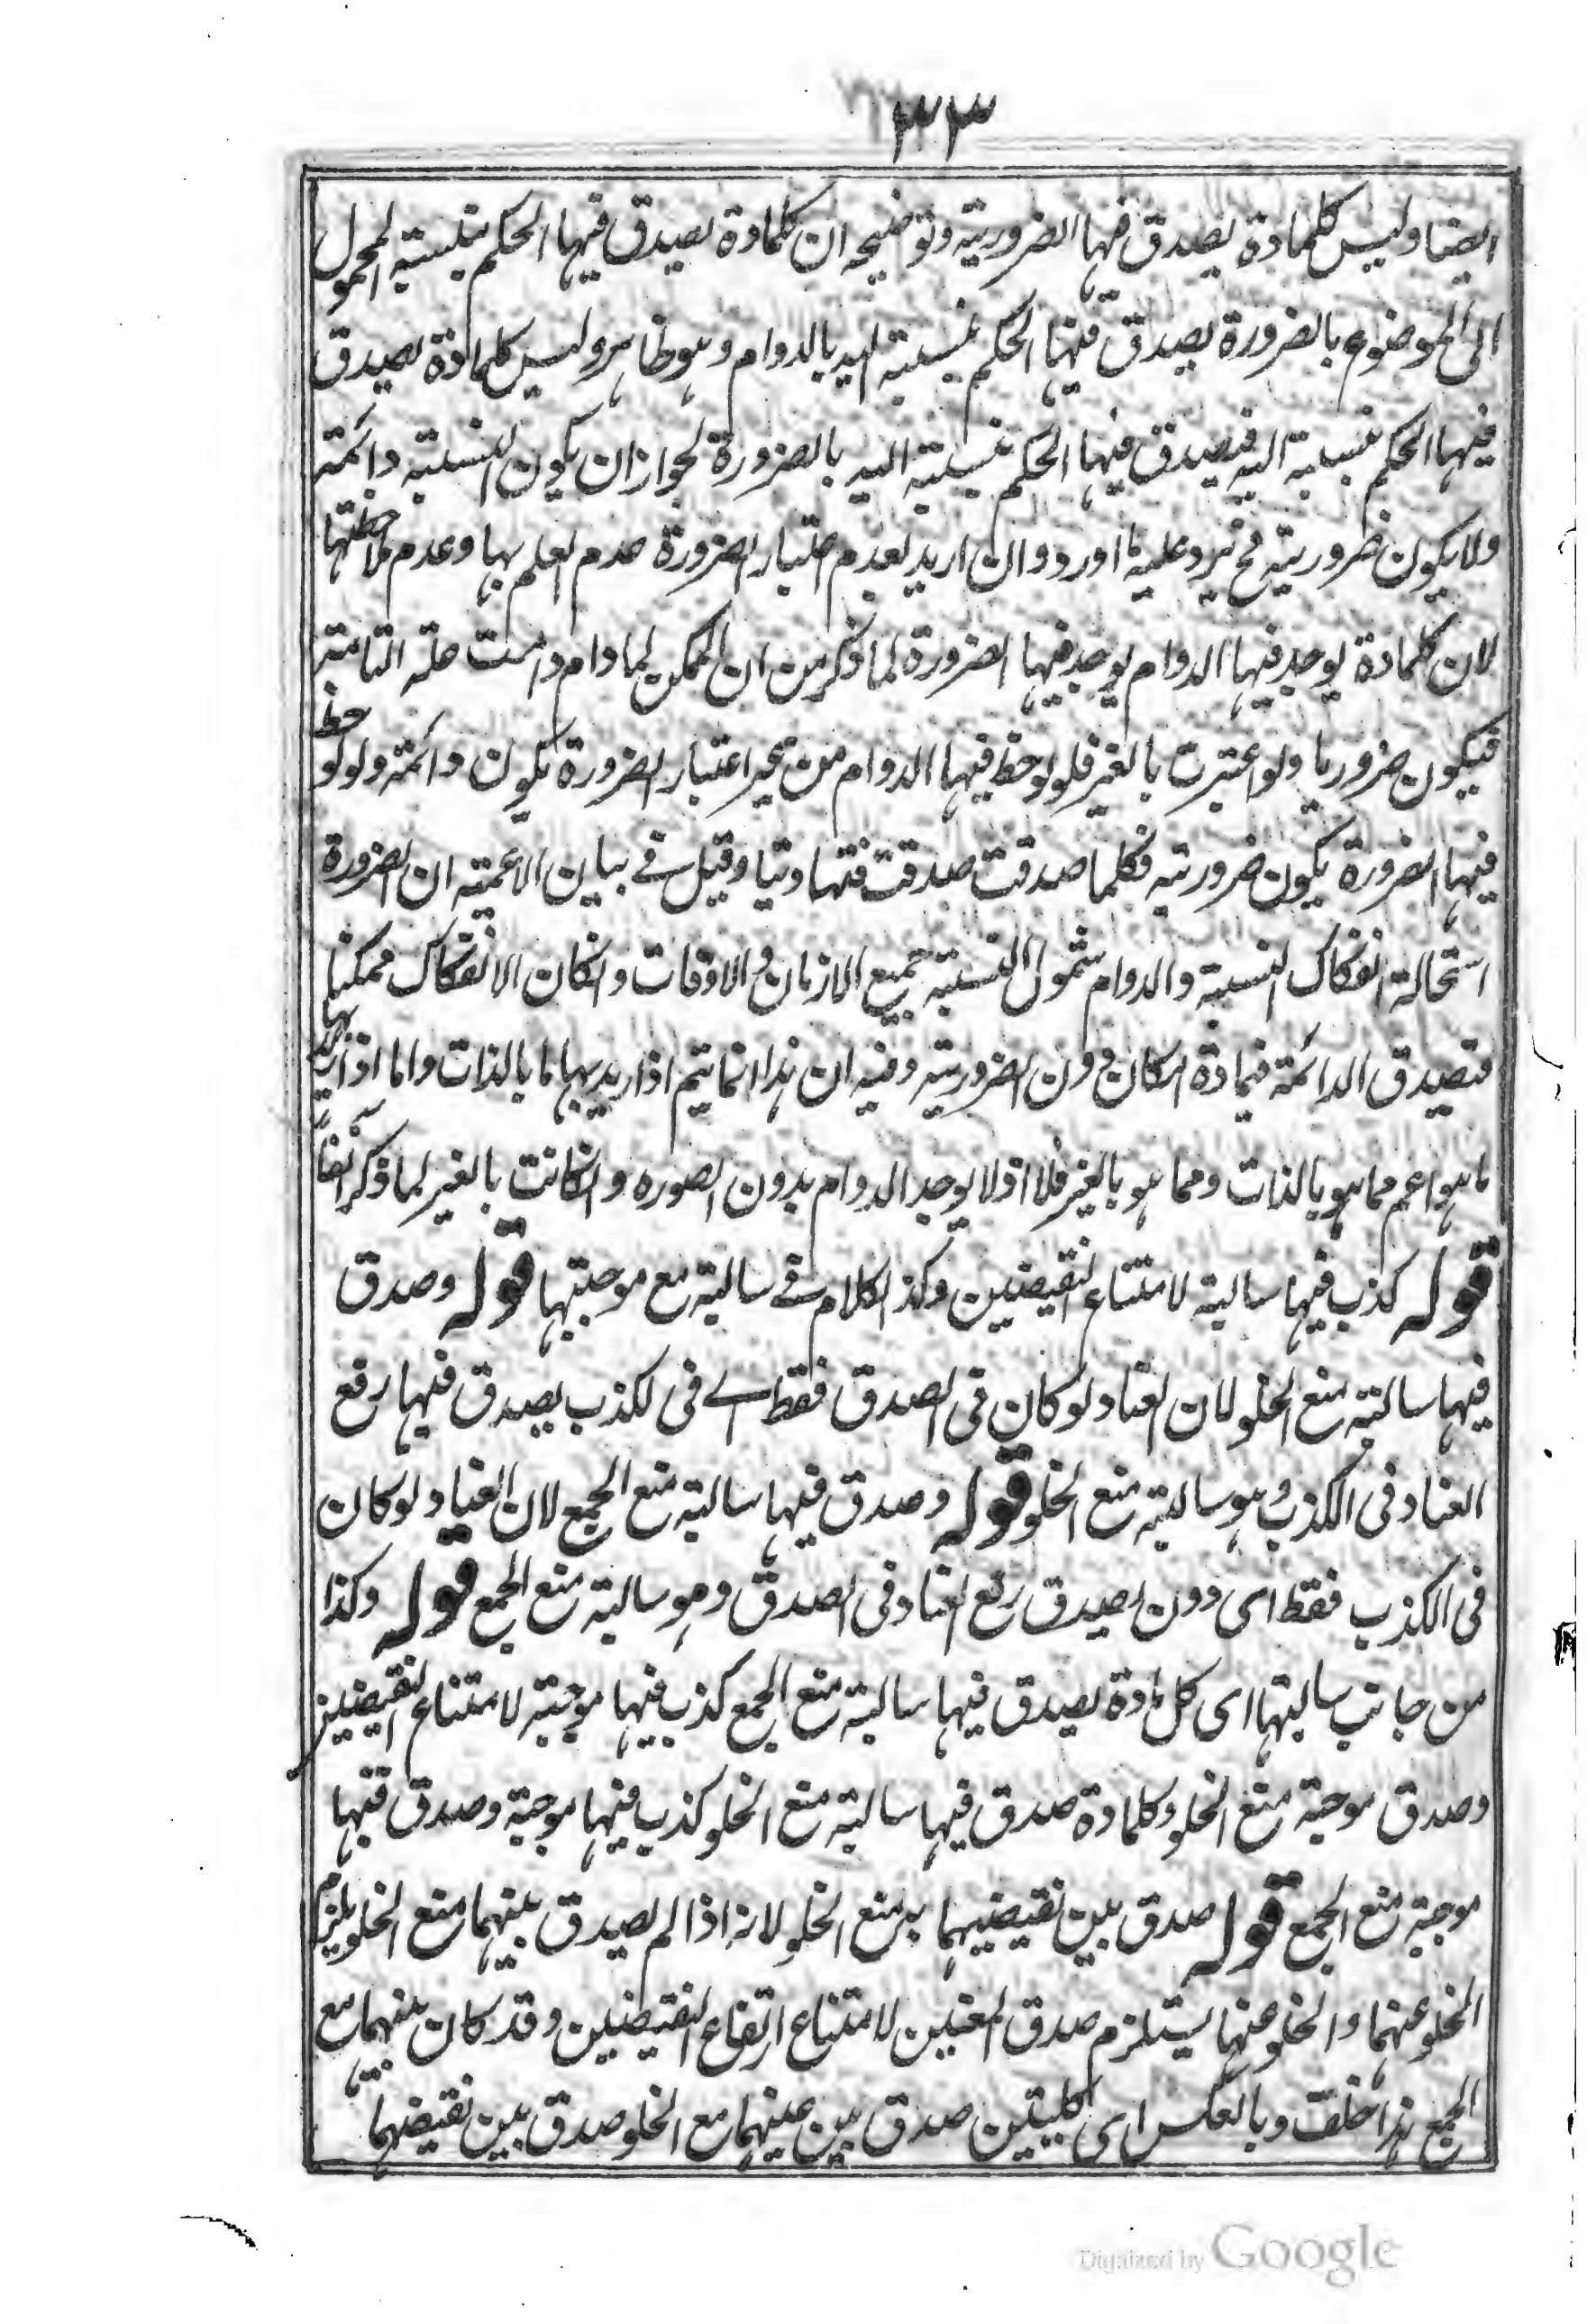 ٣٣
ايضا وليس كلمادة يصدق فيها الضرورية وتوضيحه ان كلمادة يصدق فيها الحكم بنسبة المحمول
الى الموضوع بالضرورة يصدق فيها الحكم بنسبته اليه بالدوام وهو ظاهر وليس كلمادة يصدق
فيها الحكم بنسبة اليه فيصدق فيها الحكم بنسبته اليه بالضرورة لجواز ان يكون النسبة دائمة
ولا يكون ضرورية فح يرد عليه ما اورد وان اريد بعدم اعتبار الضرورة عدم العلم بها وعدم ملاحظتها
لان كلمادة يوجد فيها الدوام يوجد فيها الضرورة لما ذكر من ان الممكن لما دام دامت علته التامة
فيكون ضروريا ولو اعتبرت بالغير فلو لوحظ فيها الدوام من غير اعتبار الضرورة يكون دائمة ولو لوحظ
فيها الضرورة يكون ضرورية فكلما صدقت صدقت فتساويا وقيل في بيان الاعمية ان الضرورة
استحالة انفكاك النسبة والدوام شمول النسبة جميع الازمان والاوقات وانكان الانفكاك ممكنا
فتصدق الدائمة فيمادة امكان دون الضرورية وفيه ان هذا انما يتم اذا اريد بها ما بالذات واما اذا اريد بها
ما هو اعم مما هو بالذات ومما هو بالغير فلا اذ لا يوجد الدوام بدون الضوره وانكانت بالغير لما ذكر آنفا
قوله كذب فيها سالبته لامتناع النقيضين وكذا الكلام في سالبة مع موجبتها قوله وصدق
فيها سالبة منع الخلو لان العناد لو كان في الصدق فقط اے في لكذب يصدق فيها رفع
العناد في الكذب وهو سالبة منع الخلو قوله وصدق فيها سالبة منع الجمع لان العناد لو كان
في الكذب فقط اى دون لصدق رفع العناد في الصدق وهو سالبة منع الجمع قوله وكذا
من جانب سالبتها اى كل مادة يصدق فيها سالبة منع الجمع كذب فيها موجبة لامتناع النقيضين
وصدق موجبة منع الخلو وكلمادة صدق فيها سالبة منع الخلو كذب فيها موجبة وصدق فيها
موجبة منع الجمع قوله صدق بين نقيضيهما به منع الخلو لانه اذا لم يصدق بينهما منع الخلو يلزم
الخلو عنهما والخلو عنها يستلزم صدق العينين لامتناع ارتفاع النقيضين وقد كان بينهما منع
الجمع هذا خلف وبالعكس اى كليتين صدق بين عينهما مع الخلو صدق بين نقيضهما
Digitized by Google